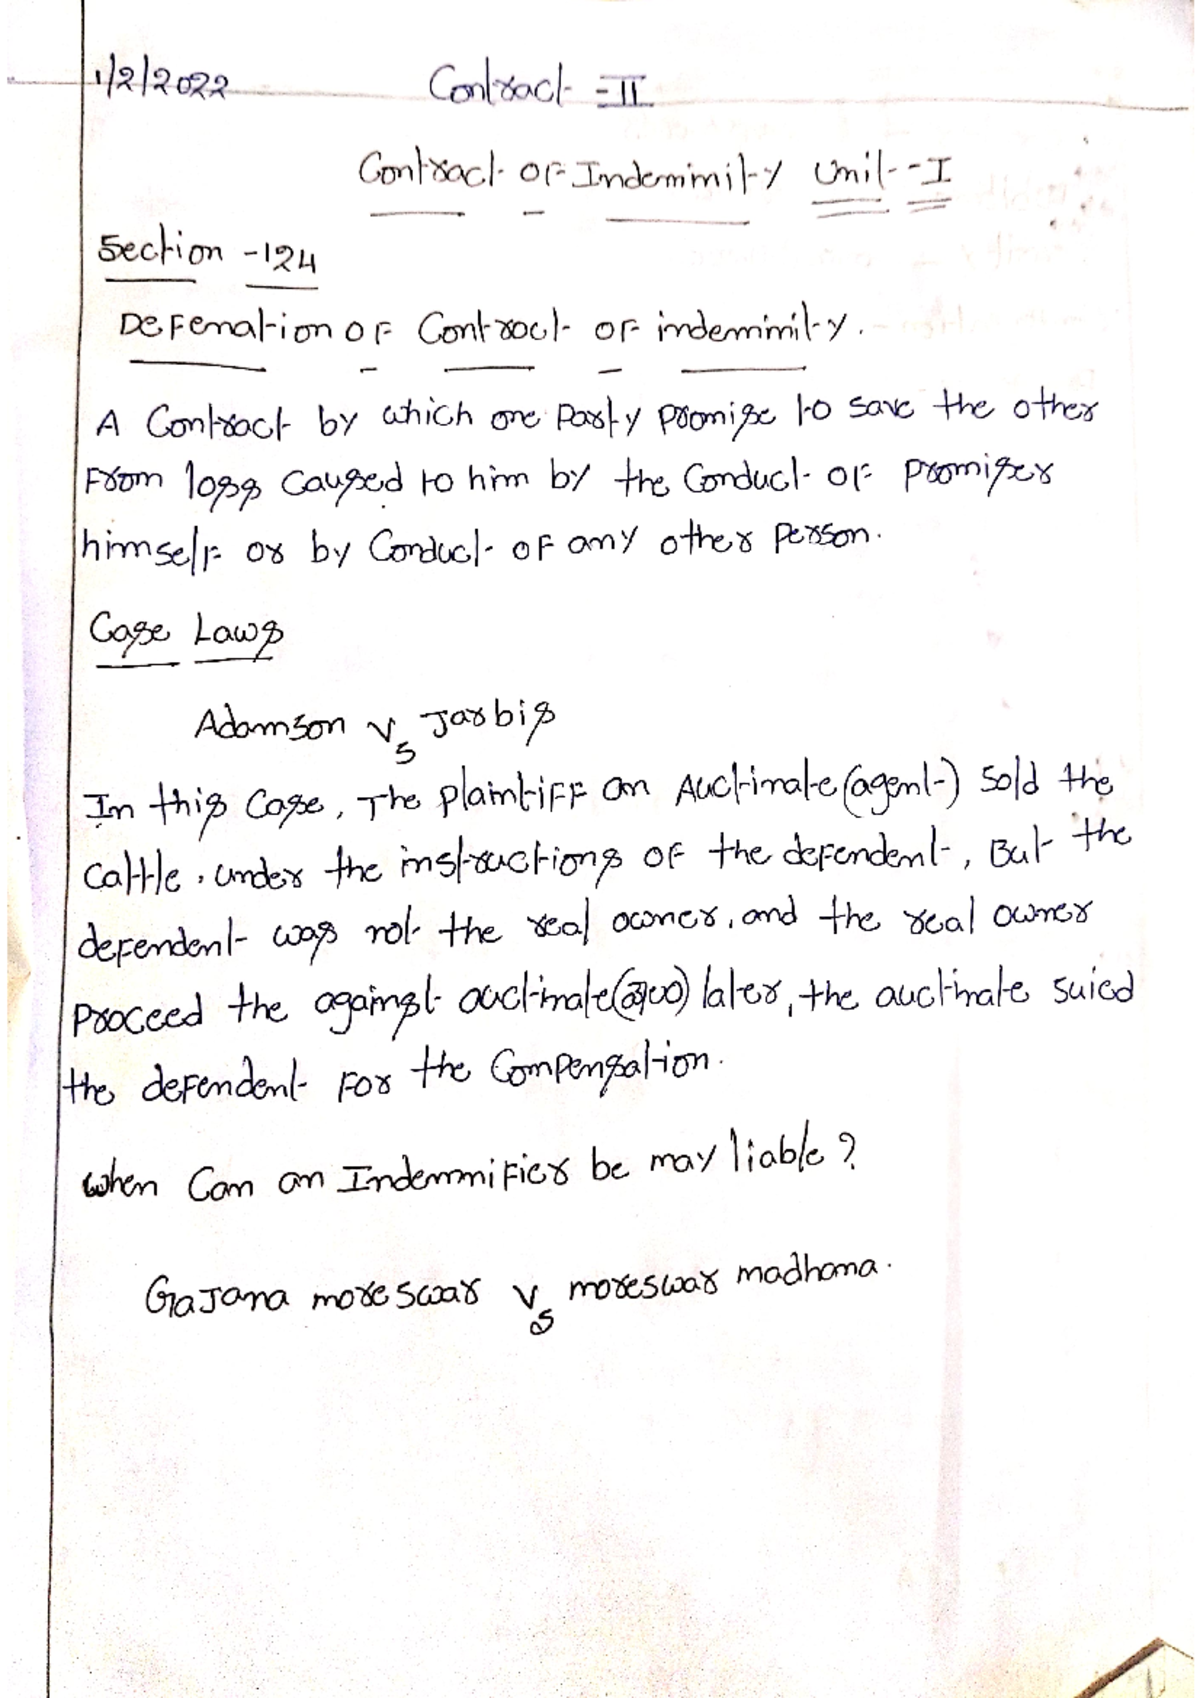 1/2/2022 Contract - II
Contract OF Indemimity Unit - I
Section - 124
DeFenation OF Contract OF indemimity.
A Contract by which one Party promise to save the other
From loss caused to him by the Conduct OF promiser
himself or by Conduct OF any other Person.
Case Laws
Adamson Vs Jarbis
In this Case, The plaintiFF an Auctinate (agent) Sold the
Cattle. under the instructions OF the defendent, But the
defendent was not the real owner, and the real owner
Proceed the against auctinate later, the auctinate suied
the defendent For the Compensation.
When Can an IndemniFier be may liable?
Gajana moreswar Vs moreswar madhana.